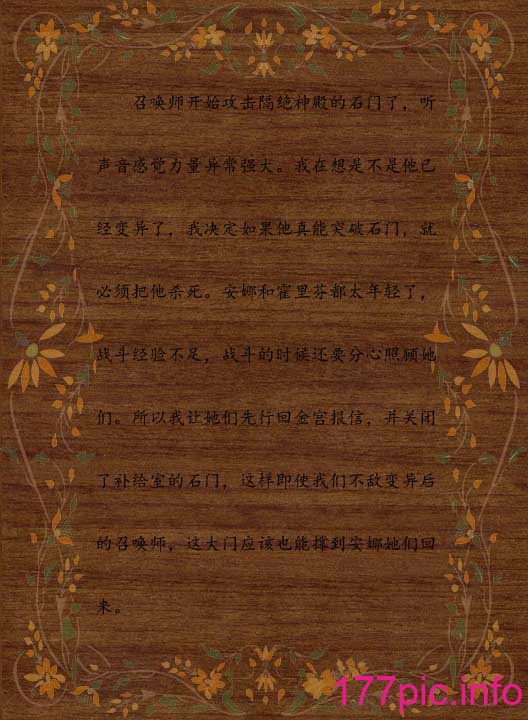 召唤师开始攻击隔绝神殿的石门了，听
声音感觉力量异常强大。我在想是不是他已
经变异了，我决定如果他真能突破石门，就
必须把他杀死。安娜和霍里芬都太年轻了，
战斗经验不足，战斗的时候还要分心照顾她
们。所以我让她们先行回金宫报信，并关闭
了补给室的石门，这样即使我们不敌变异后
的召唤师，这大门应该也能撑到安娜她们回
来。
177pic.info